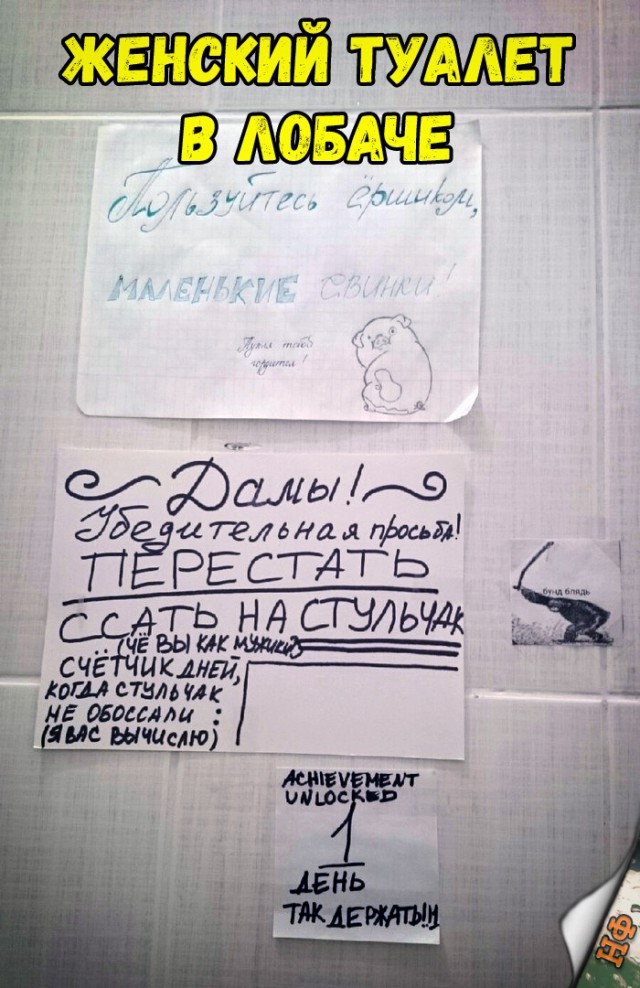 ЖЕНСКИЙ ТУАЛЕТ
В ЛОБАЧЕ
Пользуйтесь ёршиком,
МАЛЕНЬКИЕ СВИНКИ!
тобой
гордится!
Дамы!
Убедительная просьба!
ПЕРЕСТАТЬ
ССАТЬ НА СТУЛЬЧАК
(ЧЁ ВЫ КАК МУЖИКИ)
СЧЁТЧИК ДНЕЙ,
КОГДА СТУЛЬЧАК
НЕ ОБОССАЛИ :
(Я ВАС ВЫЧИСЛЮ)
бунд блядь
ACHIEVEMENT
UNLOCKED
1
ДЕНЬ
ТАК ДЕРЖАТЬ!!!
НФ